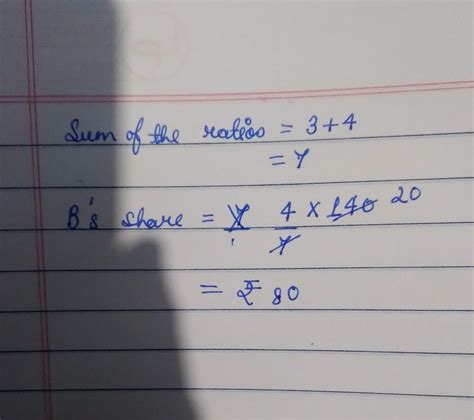 Sum of the ratios = 3+4
= 7
B's share = 4/7 × 140 20
= ₹ 80